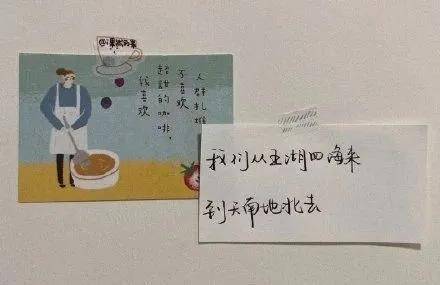 人群扎堆
不喜欢
超甜的咖啡，
我喜欢
我们从五湖四海来
到天南地北去